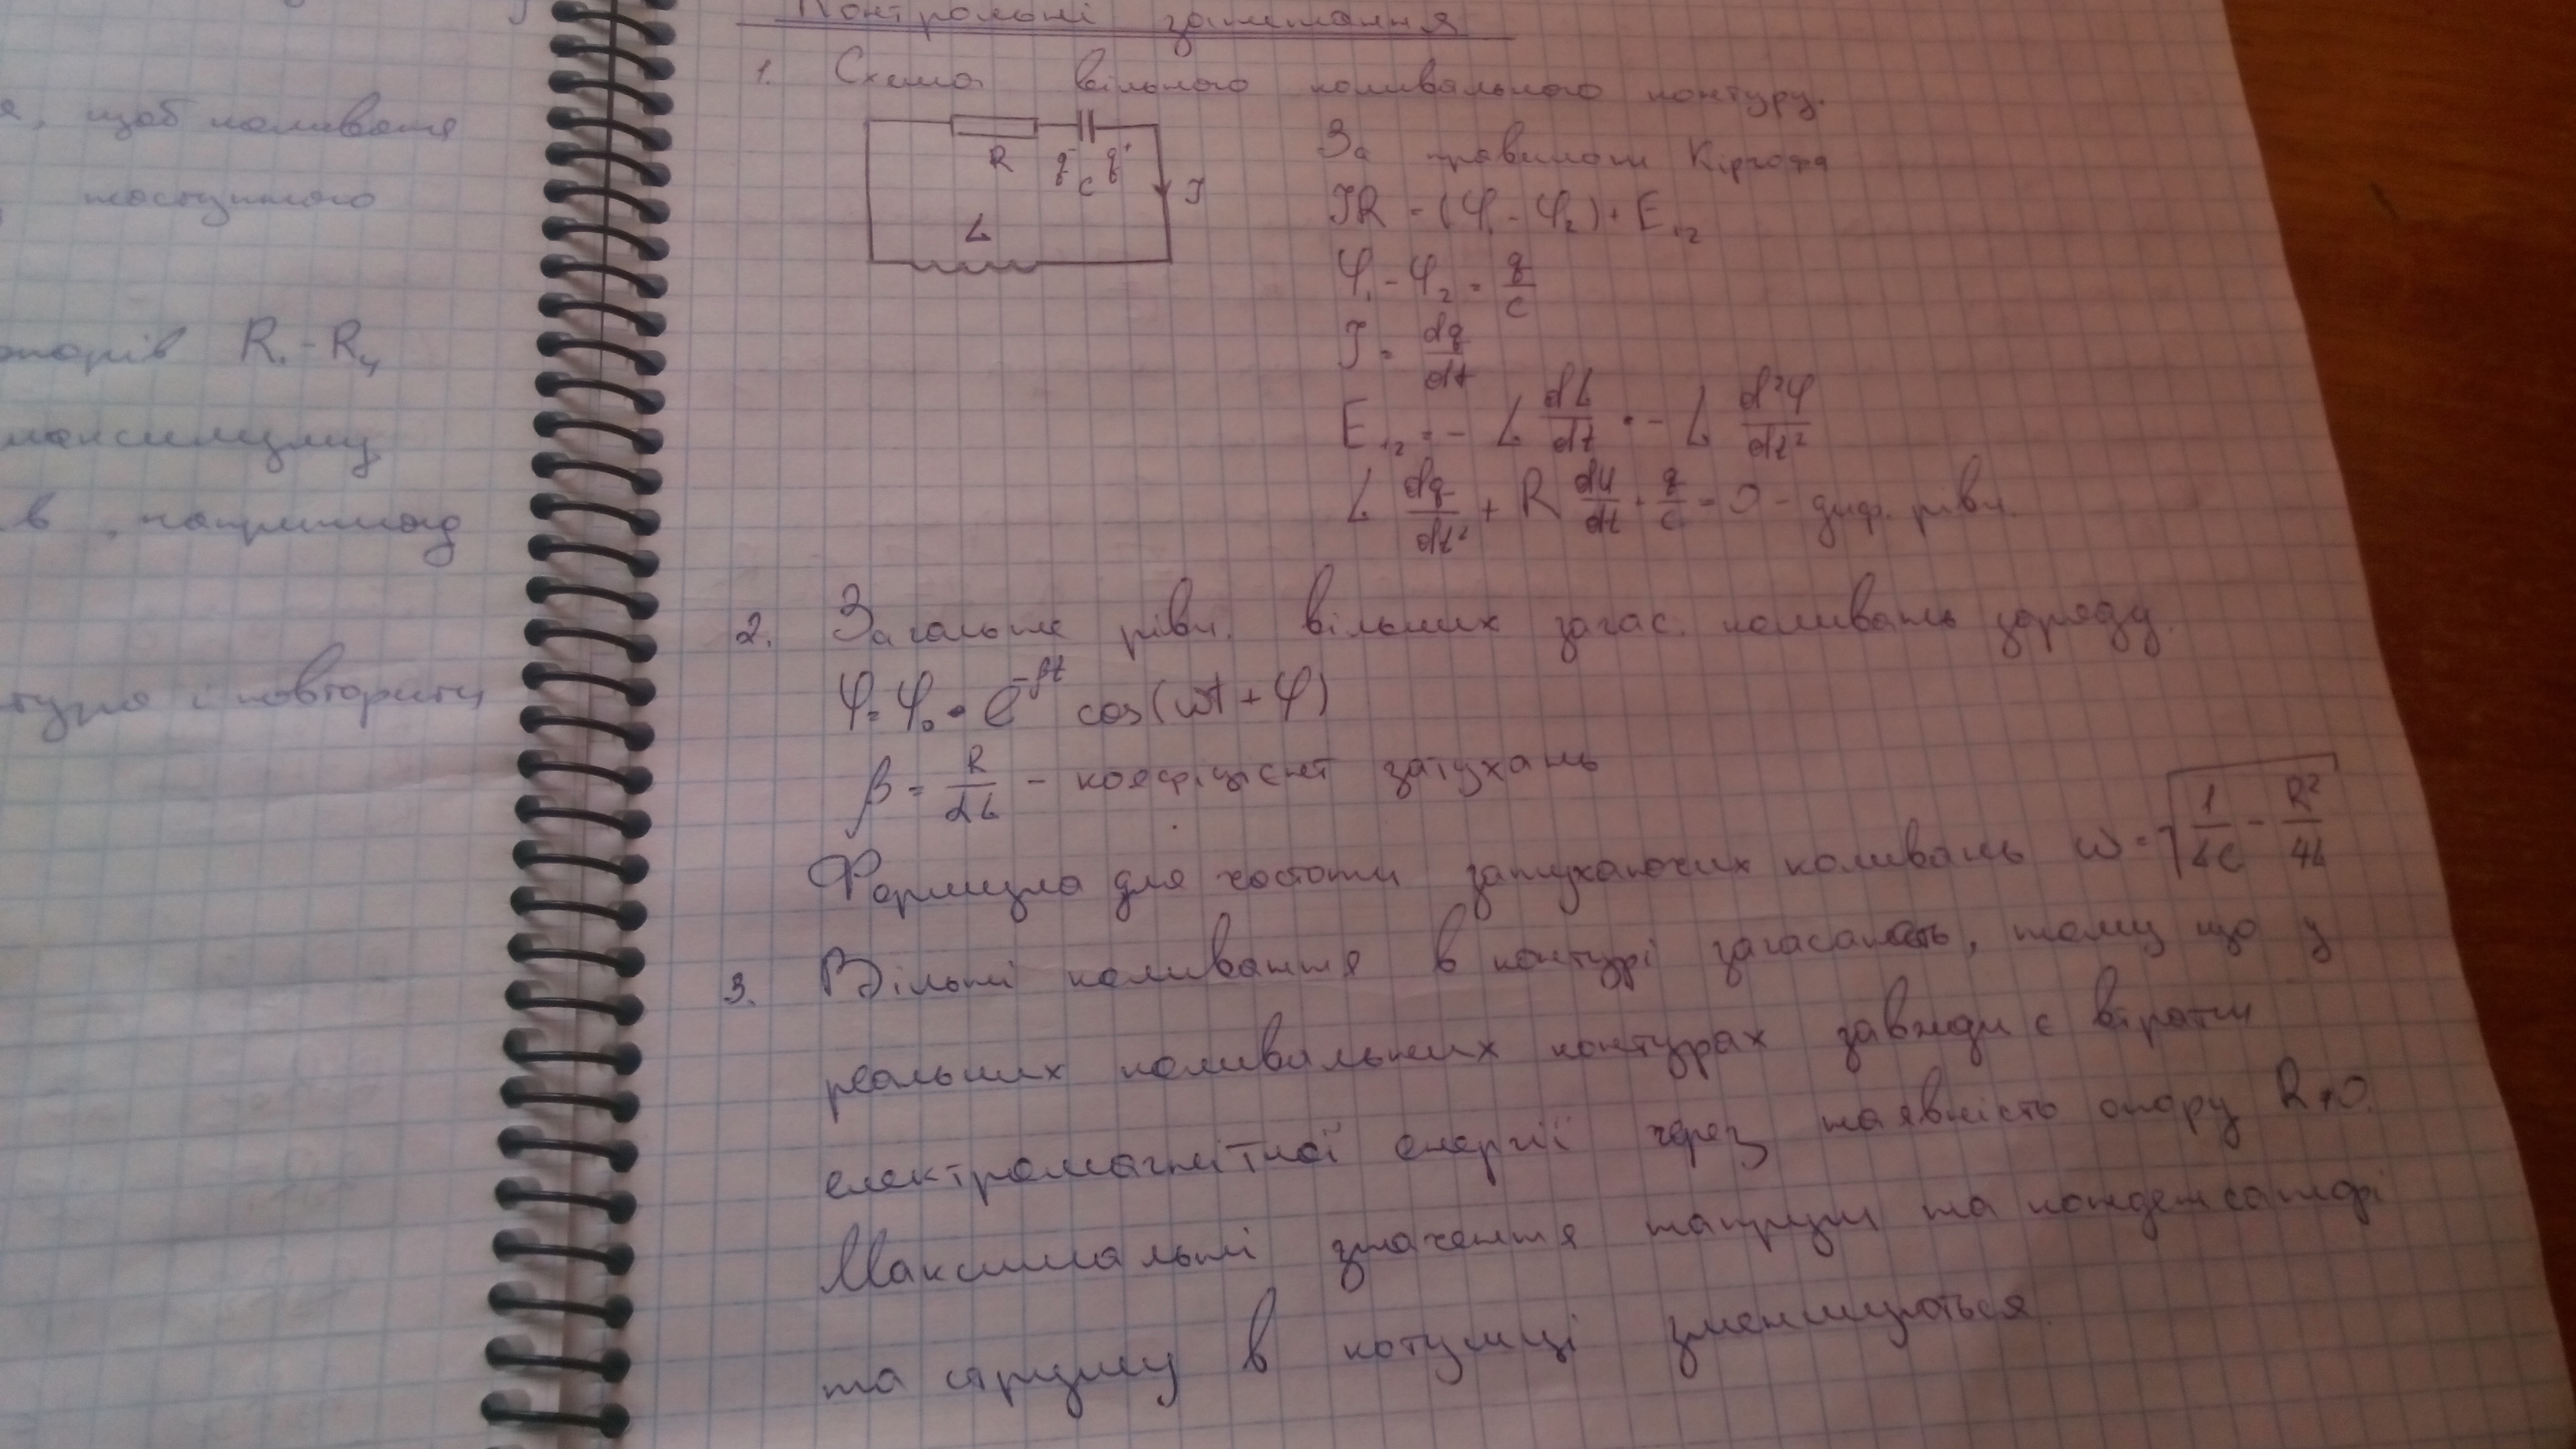 я, щоб коливання
наступного
опорів R₁-R₄
максимуму
в, наприклад
тура і повторити
Контрольні запитання
1. Схема вільного коливального контуру.
R q⁻ C q⁺ I
L
За правилом Кіргофа
IR = (φ₁ - φ₂) + E₁₂
φ₁ - φ₂ = q/c
I = dq/dt
E₁₂ = - L dL/dt = - L d²φ/dt²
L dq/dt² + R dU/dt + q/c = 0 - диф. рівн.
2. Загальне рівн. вільних загас. коливань заряду.
φ = φ₀ • e^(-βt) cos(ωt + φ)
β = R/2L - коефіцієнт затухань
Формула для частоти затухаючих коливань ω = √(1/LC - R²/4L)
3. Вільні коливання в контурі загасають, тому що у
реальних коливальних контурах завжди є втрати
електромагнітної енергії через наявність опору R≠0.
Максимальні значення напруги на конденсаторі
та струму в котушці зменшуються.